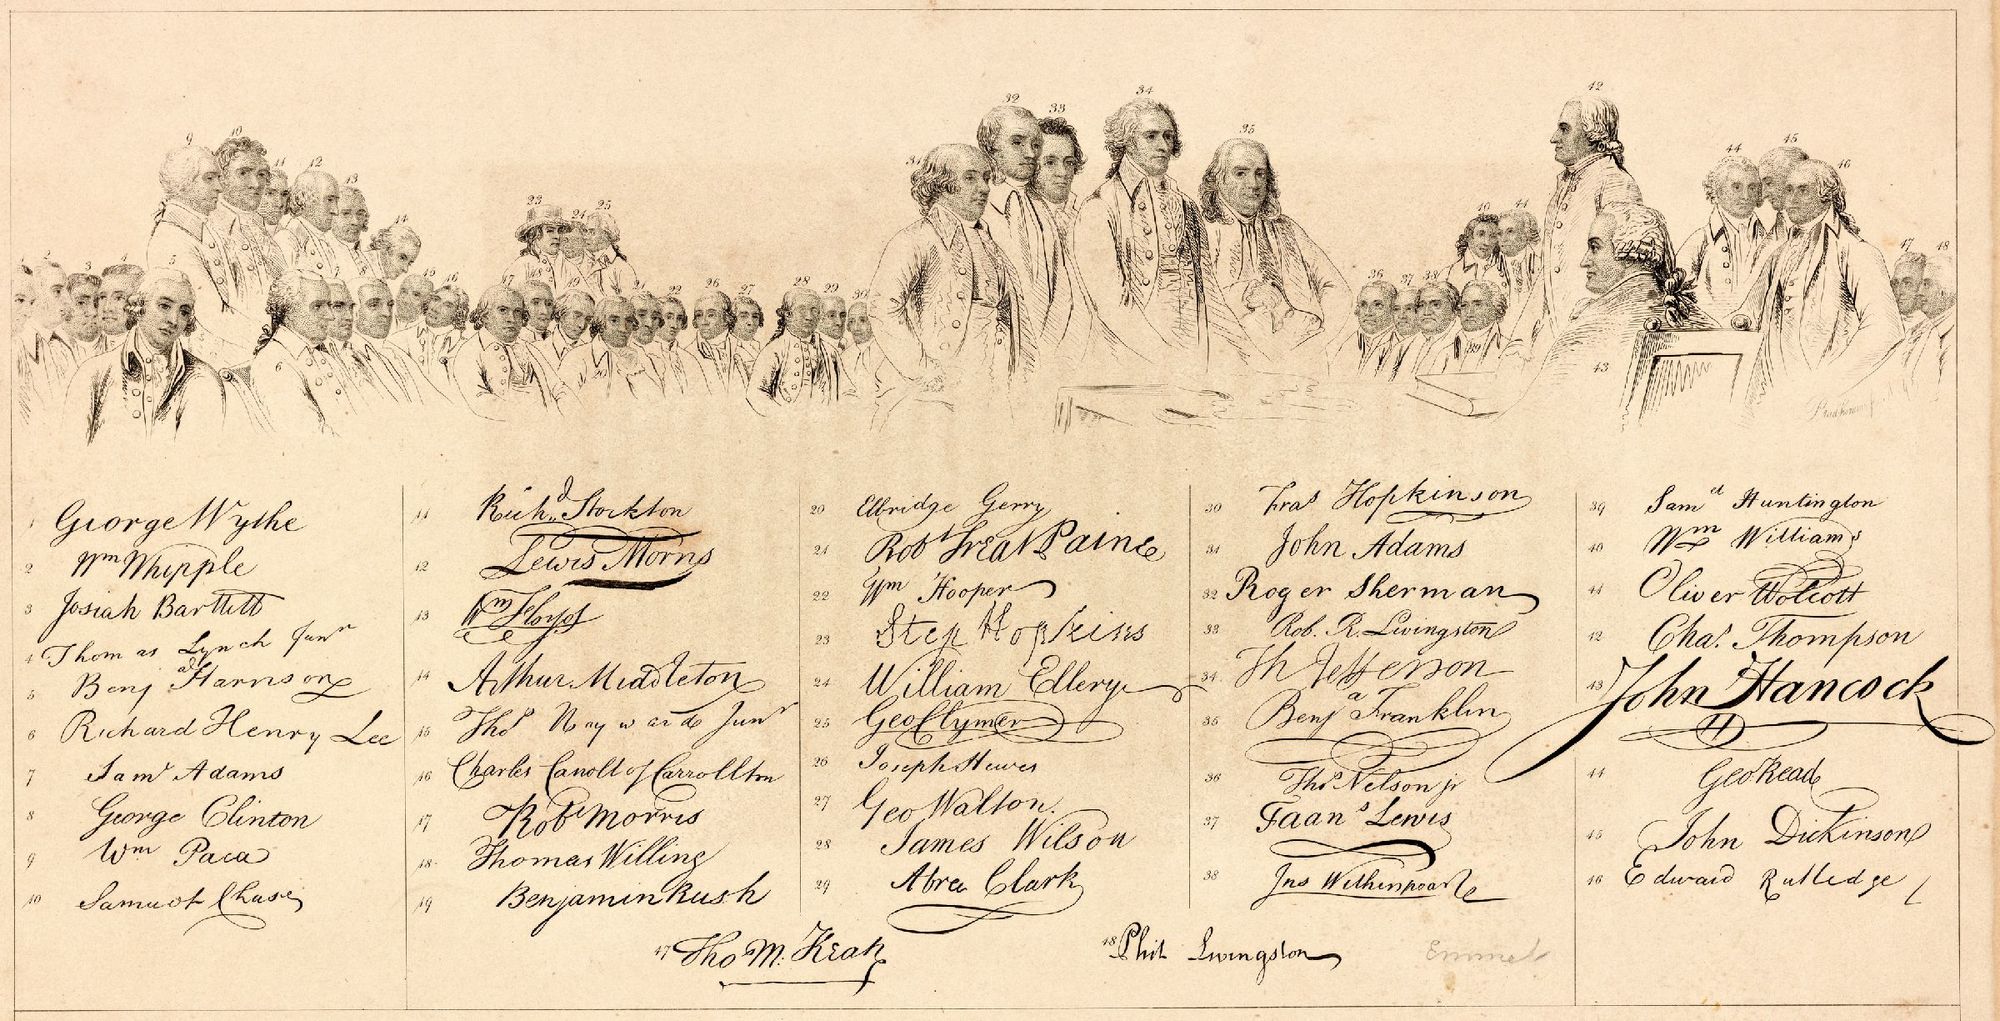 9 10 11 12 13 14
23 24 25
31 32 33 34 35
42
40 41
44 45 46
1 2 3 4 5 6 7 8
15 16 17 18 19 20 21 22 26 27 28 29 30
36 37 38 39
43
47 48
Prudhomme
1 George Wythe
2 Wm Whipple
3 Josiah Bartlett
4 Thomas Lynch Junr
5 Benja Harrison
6 Richard Henry Lee
7 Saml Adams
8 George Clinton
9 Wm Paca
10 Samuel Chase
11 Richd Stockton
12 Lewis Morris
13 Wm Floyd
14 Arthur Middleton
15 Thos Hayward Junr
16 Charles Carroll of Carrollton
17 Robt Morris
18 Thomas Willing
19 Benjamin Rush
20 Elbridge Gerry
21 Robt Treat Paine
22 Wm Hooper
23 Step Hopkins
24 William Ellery
25 Geo Clymer
26 Joseph Hewes
27 Geo Walton
28 James Wilson
29 Abra Clark
30 Fras Hopkinson
31 John Adams
32 Roger Sherman
33 Rob. R. Livingston
34 Th Jefferson
35 Benja Franklin
36 Thos Nelson jr
37 Faans Lewis
38 Jno Witherspoon
39 Saml Huntington
40 Wm Williams
41 Oliver Wolcott
42 Chas. Thompson
43 John Hancock
44 Geo Read
45 John Dickinson
46 Edward Rutledge /
47 Tho M. Kean
48 Phil Livingston
Emmet